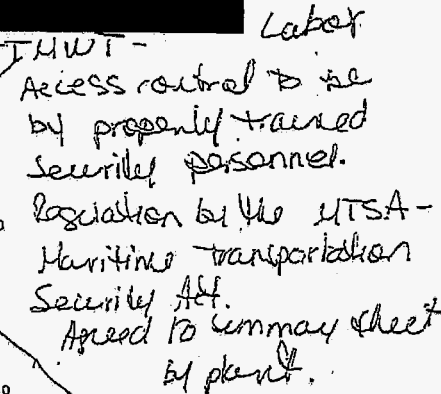 Labor
IMWT -
Access control to be
by properly trained
Security personnel.
Regulation by the MTSA -
Maritime Transportation
Security Act.
Agreed to summary sheet
by plant.